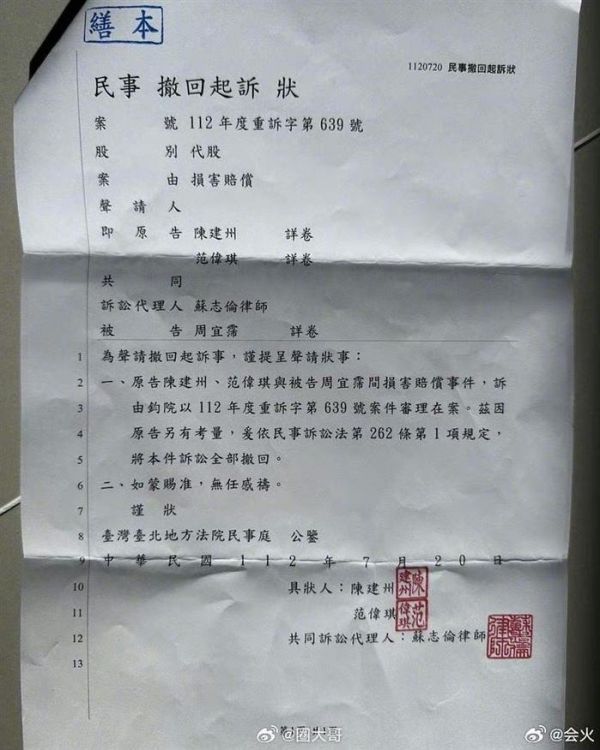 繕本
1120720 民事撤回起訴狀
民事 撤回起訴 狀
案 號 112年度重訴字第639號
股 別 代股
案 由 損害賠償
聲請人
即原告 陳建州 詳卷
范偉琪 詳卷
共 同
訴訟代理人 蘇志倫律師
被 告 周宜霈 詳卷
1 為聲請撤回起訴事，謹提呈聲請狀事：
2 一、原告陳建州、范偉琪與被告周宜霈間損害賠償事件，訴
3 由鈞院以112年度重訴字第639號案件審理在案。茲因
4 原告另有考量，爰依民事訴訟法第262條第1項規定，
5 將本件訴訟全部撤回。
6 二、如蒙賜准，無任感禱。
7 謹 狀
8 臺灣臺北地方法院民事庭 公鑒
9 中華民國112年7月20日
10 具狀人：陳建州 陳建州
11 范偉琪 范偉琪
12 共同訴訟代理人：蘇志倫律師
13
@圈大哥 @会火